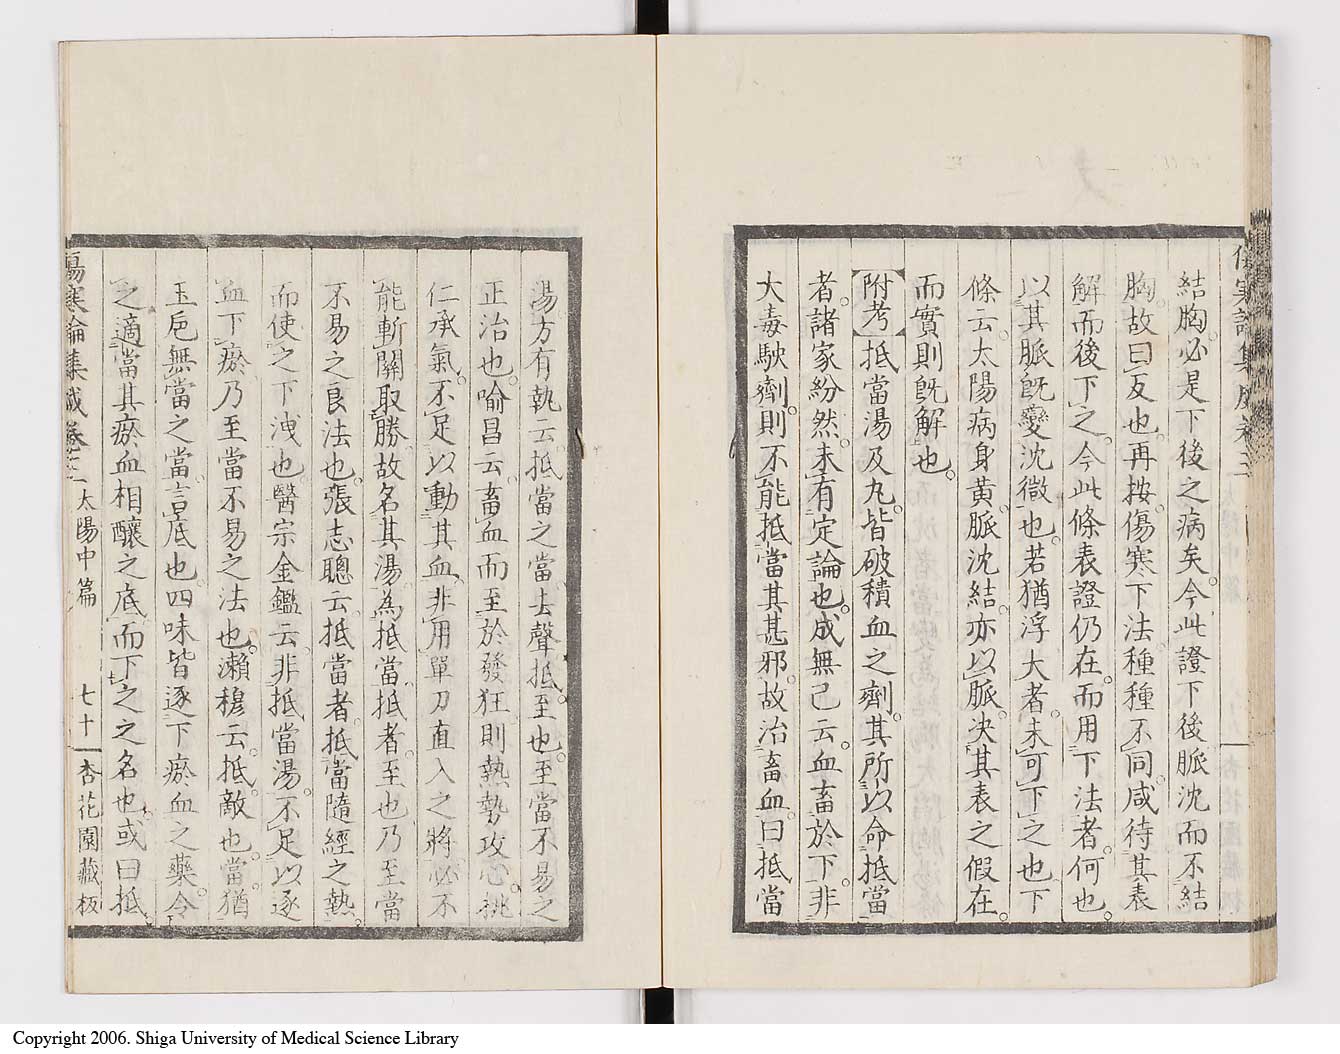 傷寒論集成卷三
結胸必是下後之病矣今此證下後脈沈而不結
胸故曰反也再按傷寒下法種種不同咸待其表
解而後下之今此條表證仍在而用下法者何也
以其脈既變沈微也若猶浮大者未可下之也下
條云太陽病身黃脈沈結亦以脈決其表之假在
而實則既解也
附考 抵當湯及丸皆破積血之劑其所以命抵當
者諸家紛然未有定論也成無己云血畜於下非
大毒駃劑則不能抵當其甚邪故治畜血曰抵當
湯方有執云抵當之當去聲抵至也至當不易之
正治也喻昌云畜血而至於發狂則熱勢攻心桃
仁承氣不足以動其血非用單刀直入之將必不
能斬關取勝故名其湯為抵當抵者至也乃至當
不易之良法也張志聰云抵當者抵當隨經之熱
而使之下洩也醫宗金鑑云非抵當湯不足以逐
血下瘀乃至當不易之法也瀨穆云抵敵也當猶
玉巵無當之當言底也四味皆逐下瘀血之藥令
之適當其瘀血相釀之底而下之之名也或曰抵
傷寒論集成卷三 太陽中篇 七十 杏花園藏板
Copyright 2006. Shiga University of Medical Science Library